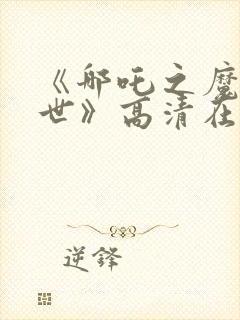 《哪吒之魔
世》高清在
逆锋